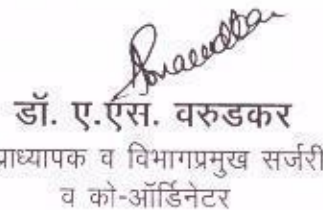 डॉ. ए.एस. वरुडकर
प्राध्यापक व विभागप्रमुख सर्जरी
व को-ऑर्डिनेटर